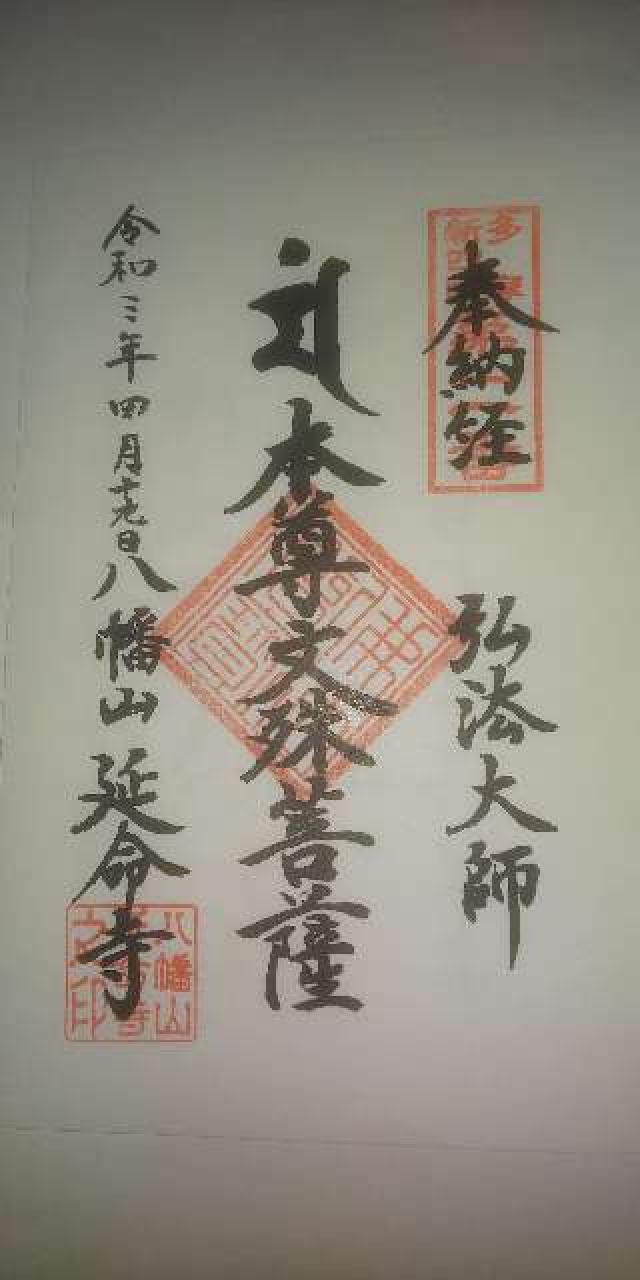 奉納経
弘法大師
本尊文殊菩薩
令和三年四月十九日
八幡山延命寺
八幡山
之印